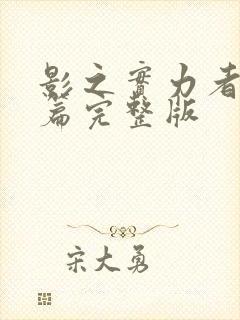 影之實力者
篇完整版
宋大勇